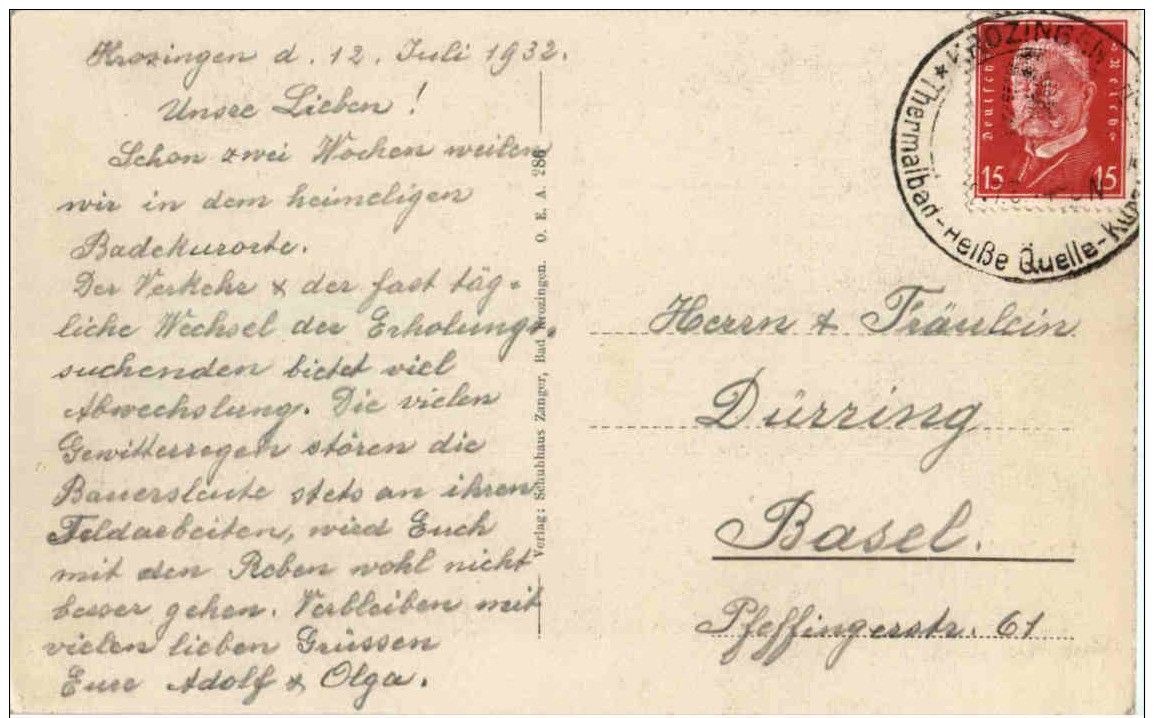 Krozingen d. 12. Juli 1932.
Unsre Lieben!
Schon zwei Wochen weilen
wir in dem heimeligen
Badekurorte.
Der Verkehr & der fast täg-
liche Wechsel der Erholungs-
suchenden bietet viel
Abwechslung. Die vielen
Gewitterregen stören die
Bauersleute stets an ihren
Feldarbeiten, wird Euch
mit den Reben wohl nicht
besser gehen. Verbleiben mit
vielen lieben Grüssen
Eure Adolf & Olga.
Verlag: Schuhhaus Zanger, Bad Krozingen. O. E. A. 286
*KROZINGEN
Thermalbad-Heiße Quelle-Kur
Deutsches Reich
15 15
Herrn & Fräulein
Dürring
Basel.
Pfeffingerstr. 61